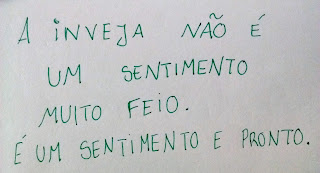 A INVEJA NÃO É
UM SENTIMENTO
MUITO FEIO.
É UM SENTIMENTO E PRONTO.